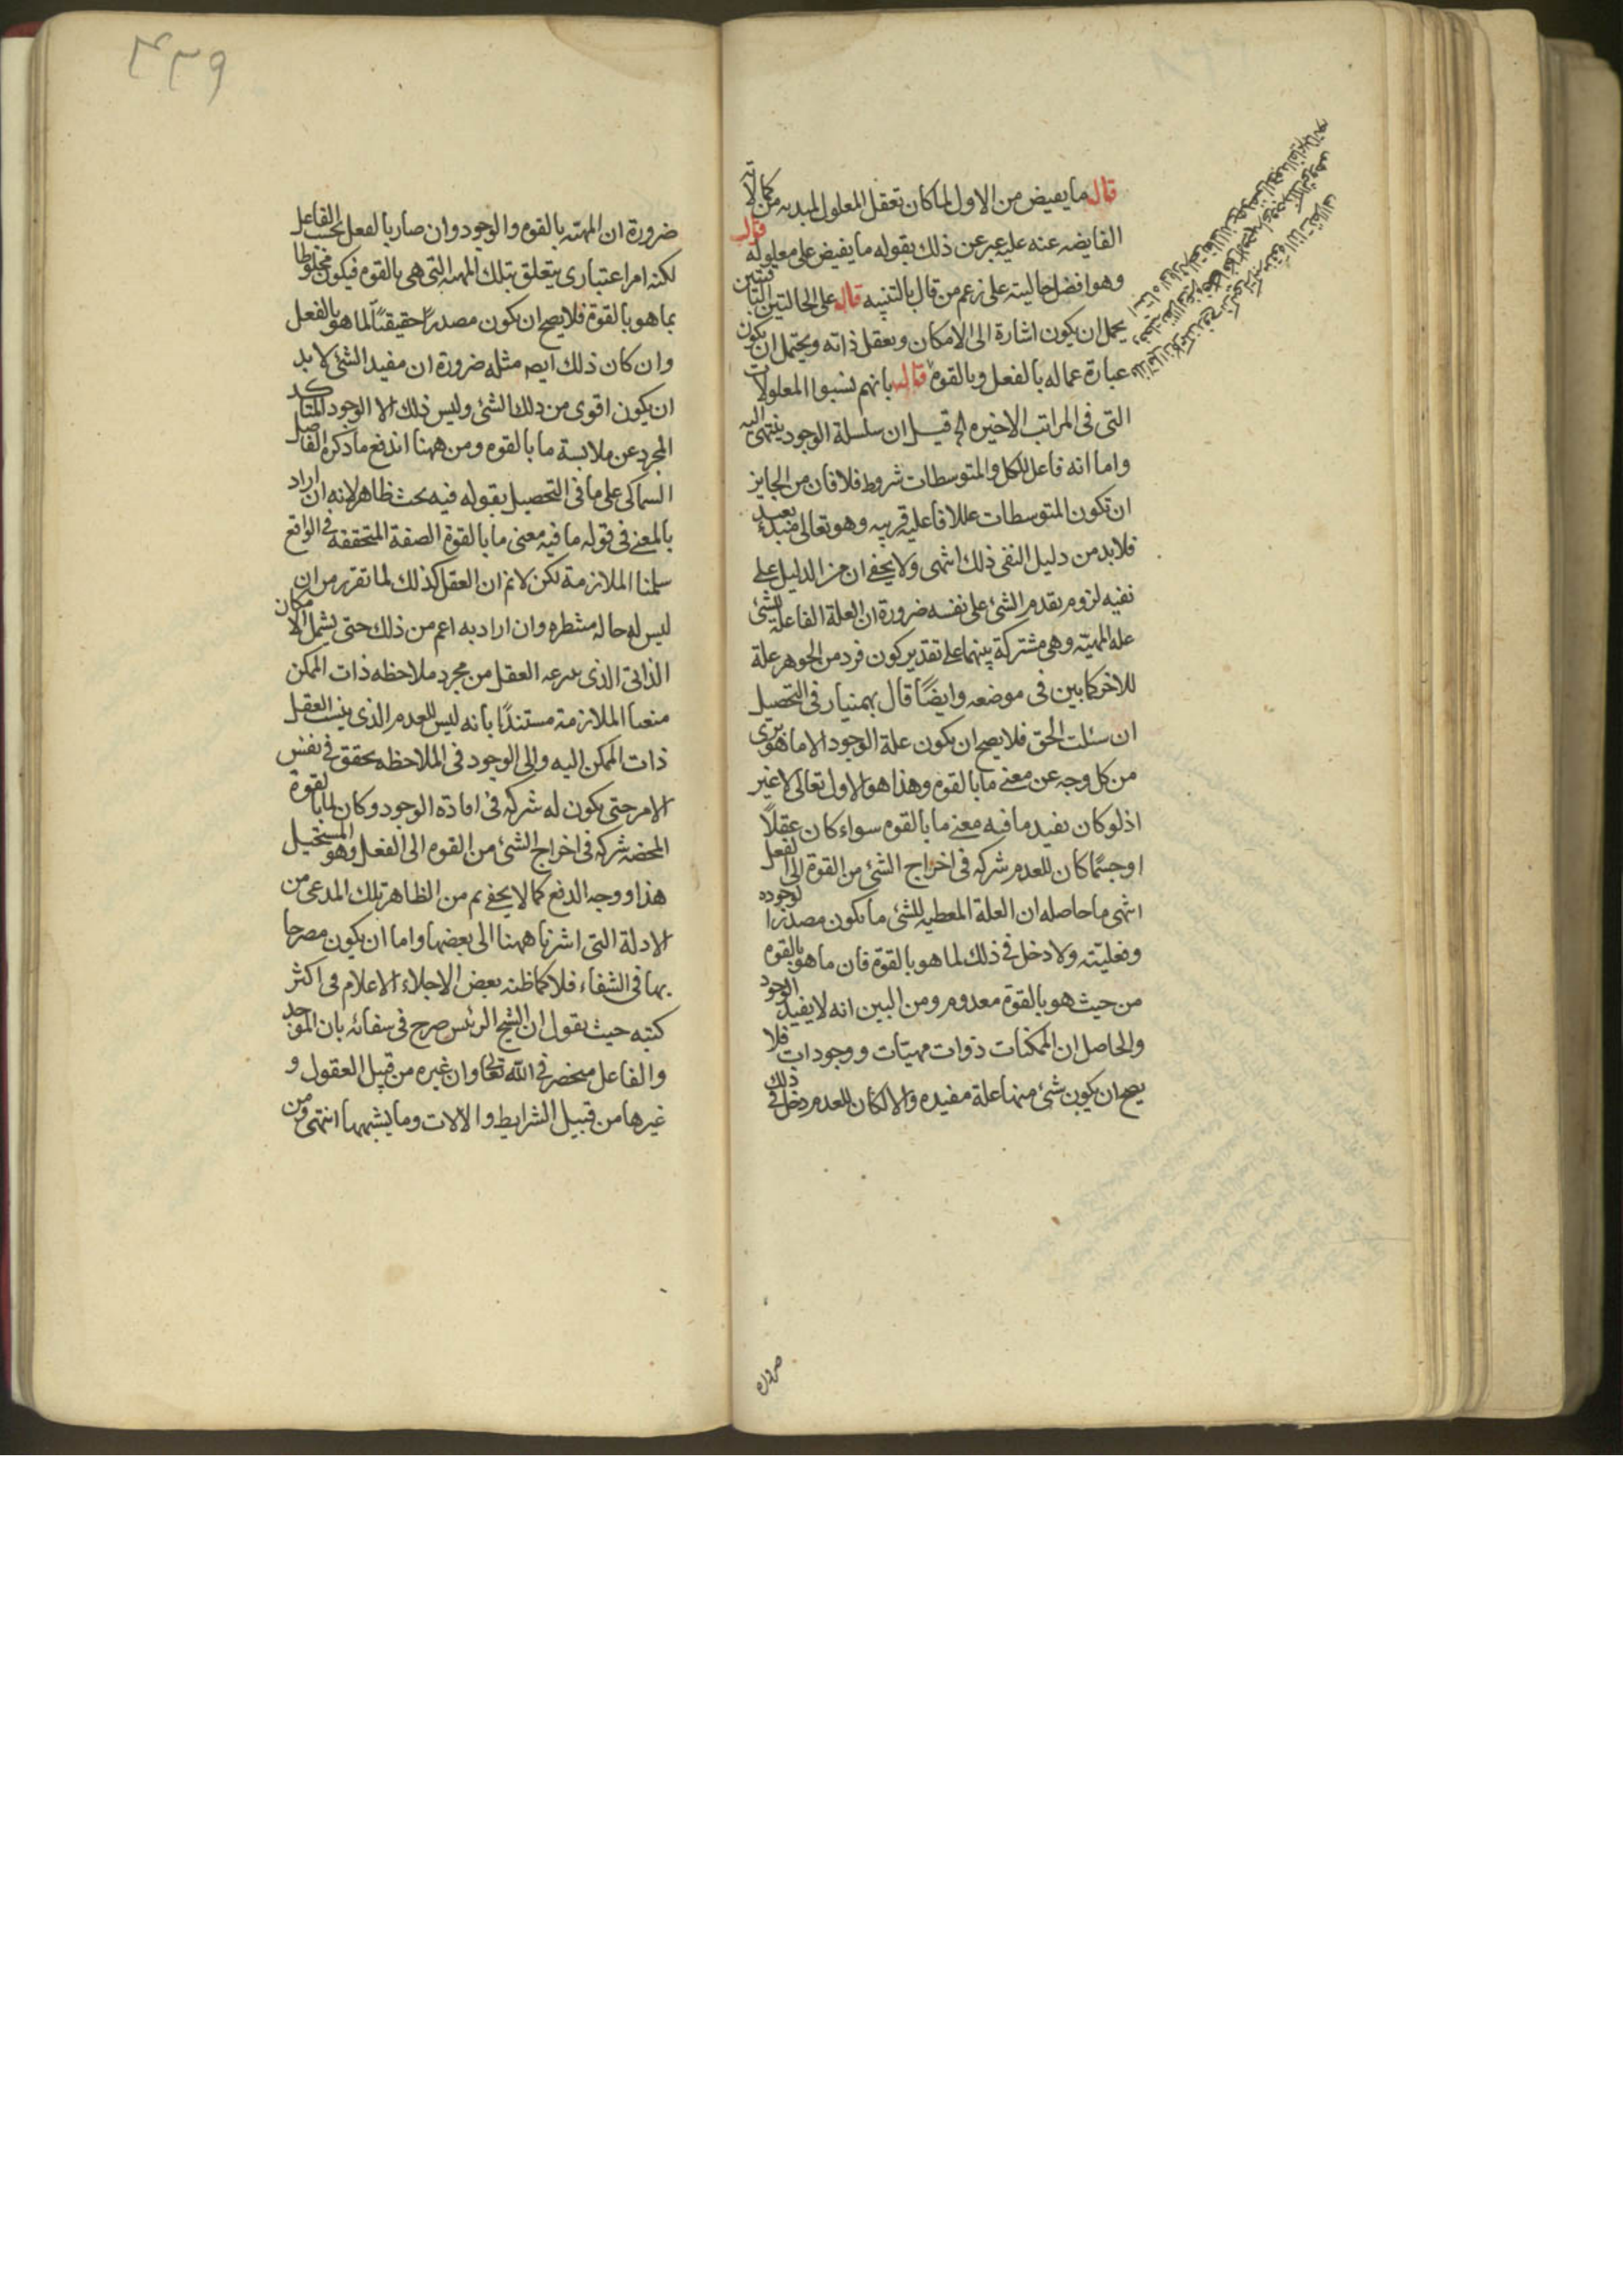 قال ما يفيض من الاول لما كان تعقل المعلول المبدئه من كمالاته
الفايضه عنه عليه عبر عن ذلك بقوله ما يفيض على معلوله قال
وهو افضل حاليته على زعم من قال بالتنبيه قال على الحالتين الثابتتين
يحمل ان يكون اشارة الى الامكان وتعقل ذاته ويحتمل ان يكون
عبارة عما له بالفعل وبالقوة قال بانهم نسبوا المعلولات
التى فى المراتب الاخيره الخ قيل ان سلسلة الوجود ينتهى اليه
واما انه فاعل للكل والمتوسطات شروط فلا فان من الجايز
ان تكون المتوسطات عللا فاعليه قريبه وهو تعالى مبدء بعيد
فلا بد من دليل لنفى ذلك انتهى ولا يخفى ان من الدليل على
نفيه لزوم تقدم الشئ على نفسه ضرورة ان العلة الفاعلة للشئ
علة المهيته وهى مشتركة بينهما على تقدير كون فرد من الجوهر علة
للاخر كما بين فى موضعه وايضًا قال بهمنيار فى التحصيل
ان سئلت الحق فلا يصح ان يكون علة الوجود الا ما هو برى
من كل وجه عن معنى ما بالقوه وهذا هو الاول تعالى لا غير
اذ لو كان يفيد ما فيه معنى ما بالقوه سواء كان عقلاً
او جسمًا كان للعدم شركه فى اخراج الشئ من القوة الى الفعل
انتهى ما حاصله ان العلة المعطيه للشئ ما تكون مصدرا لوجوده
وفعليّته ولا دخل فى ذلك لما هو بالقوة فان ما هو بالقوه
من حيث هو بالقوة معدوم ومن البين انه لا يفيد الوجود
والحاصل ان الممكنات ذوات مهيّات ووجودات فلا
يصح ان يكون شئ منها علة مفيده والا لكان للعدم دخل فى ذلك
ضروره
٤٣٩
ضرورة ان المهيّه بالقوه والوجود وان صار بالفعل بحسب الفاعل
لكنه امر اعتبارى يتعلق بتلك المهيه التى هى بالقوه فيكون مخلوطا
بما هو بالقوة فلا يصح ان يكون مصدرًا حقيقتًا لما هو بالفعل
وان كان ذلك ايضه مثله ضرورة ان مفيد الشئ لا بد
ان يكون اقوى من ذلك الشئ وليس ذلك الا الوجود المتاكد
المجرد عن ملابسة ما بالقوه ومن ههنا اندفع ما ذكره الفاضل
السماكى على ما فى التحصيل بقوله فيه بحث ظاهر لانه ان اراد
بالمعنى فى قوله ما فيه معنى ما بالقوة الصفة المتحققة فى الواقع
سلمنا الملازمة لكن لا نم ان العقل كذلك لما تقرر من ان
ليس له حاله منتظره وان اراد به اعم من ذلك حتى يشمل الامكان
الذاتى الذى ينتزعه العقل من مجرد ملاحظه ذات الممكن
منعنا الملازمة مستندًا بانه ليس للعدم الذى ينسب العقل
ذات الممكن اليه والى الوجود فى الملاحظه تحقق فى نفس
الامر حتى يكون له شركه فى افادة الوجود وكان لما بالقوة
المحضه شركه فى اخراج الشئ من القوه الى الفعل وهو المستحيل
هذا ووجه الدفع كما لا يخفى ثم من الظاهر تلك المدعى من
الادلة التى اشرنا ههنا الى بعضها واما ان يكون مصرحا
بها فى الشفاء فلا كما ظنه بعض الاجلاء الاعلام فى اكثر
كتبه حيث يقول ان الشيخ الرئيس صرح فى شفائه بان الموجد
والفاعل منحصر فى الله تعالى وان غيره من قبيل العقول و
غيرها من قبيل الشرايط والالات وما يشبهها انتهى ومن